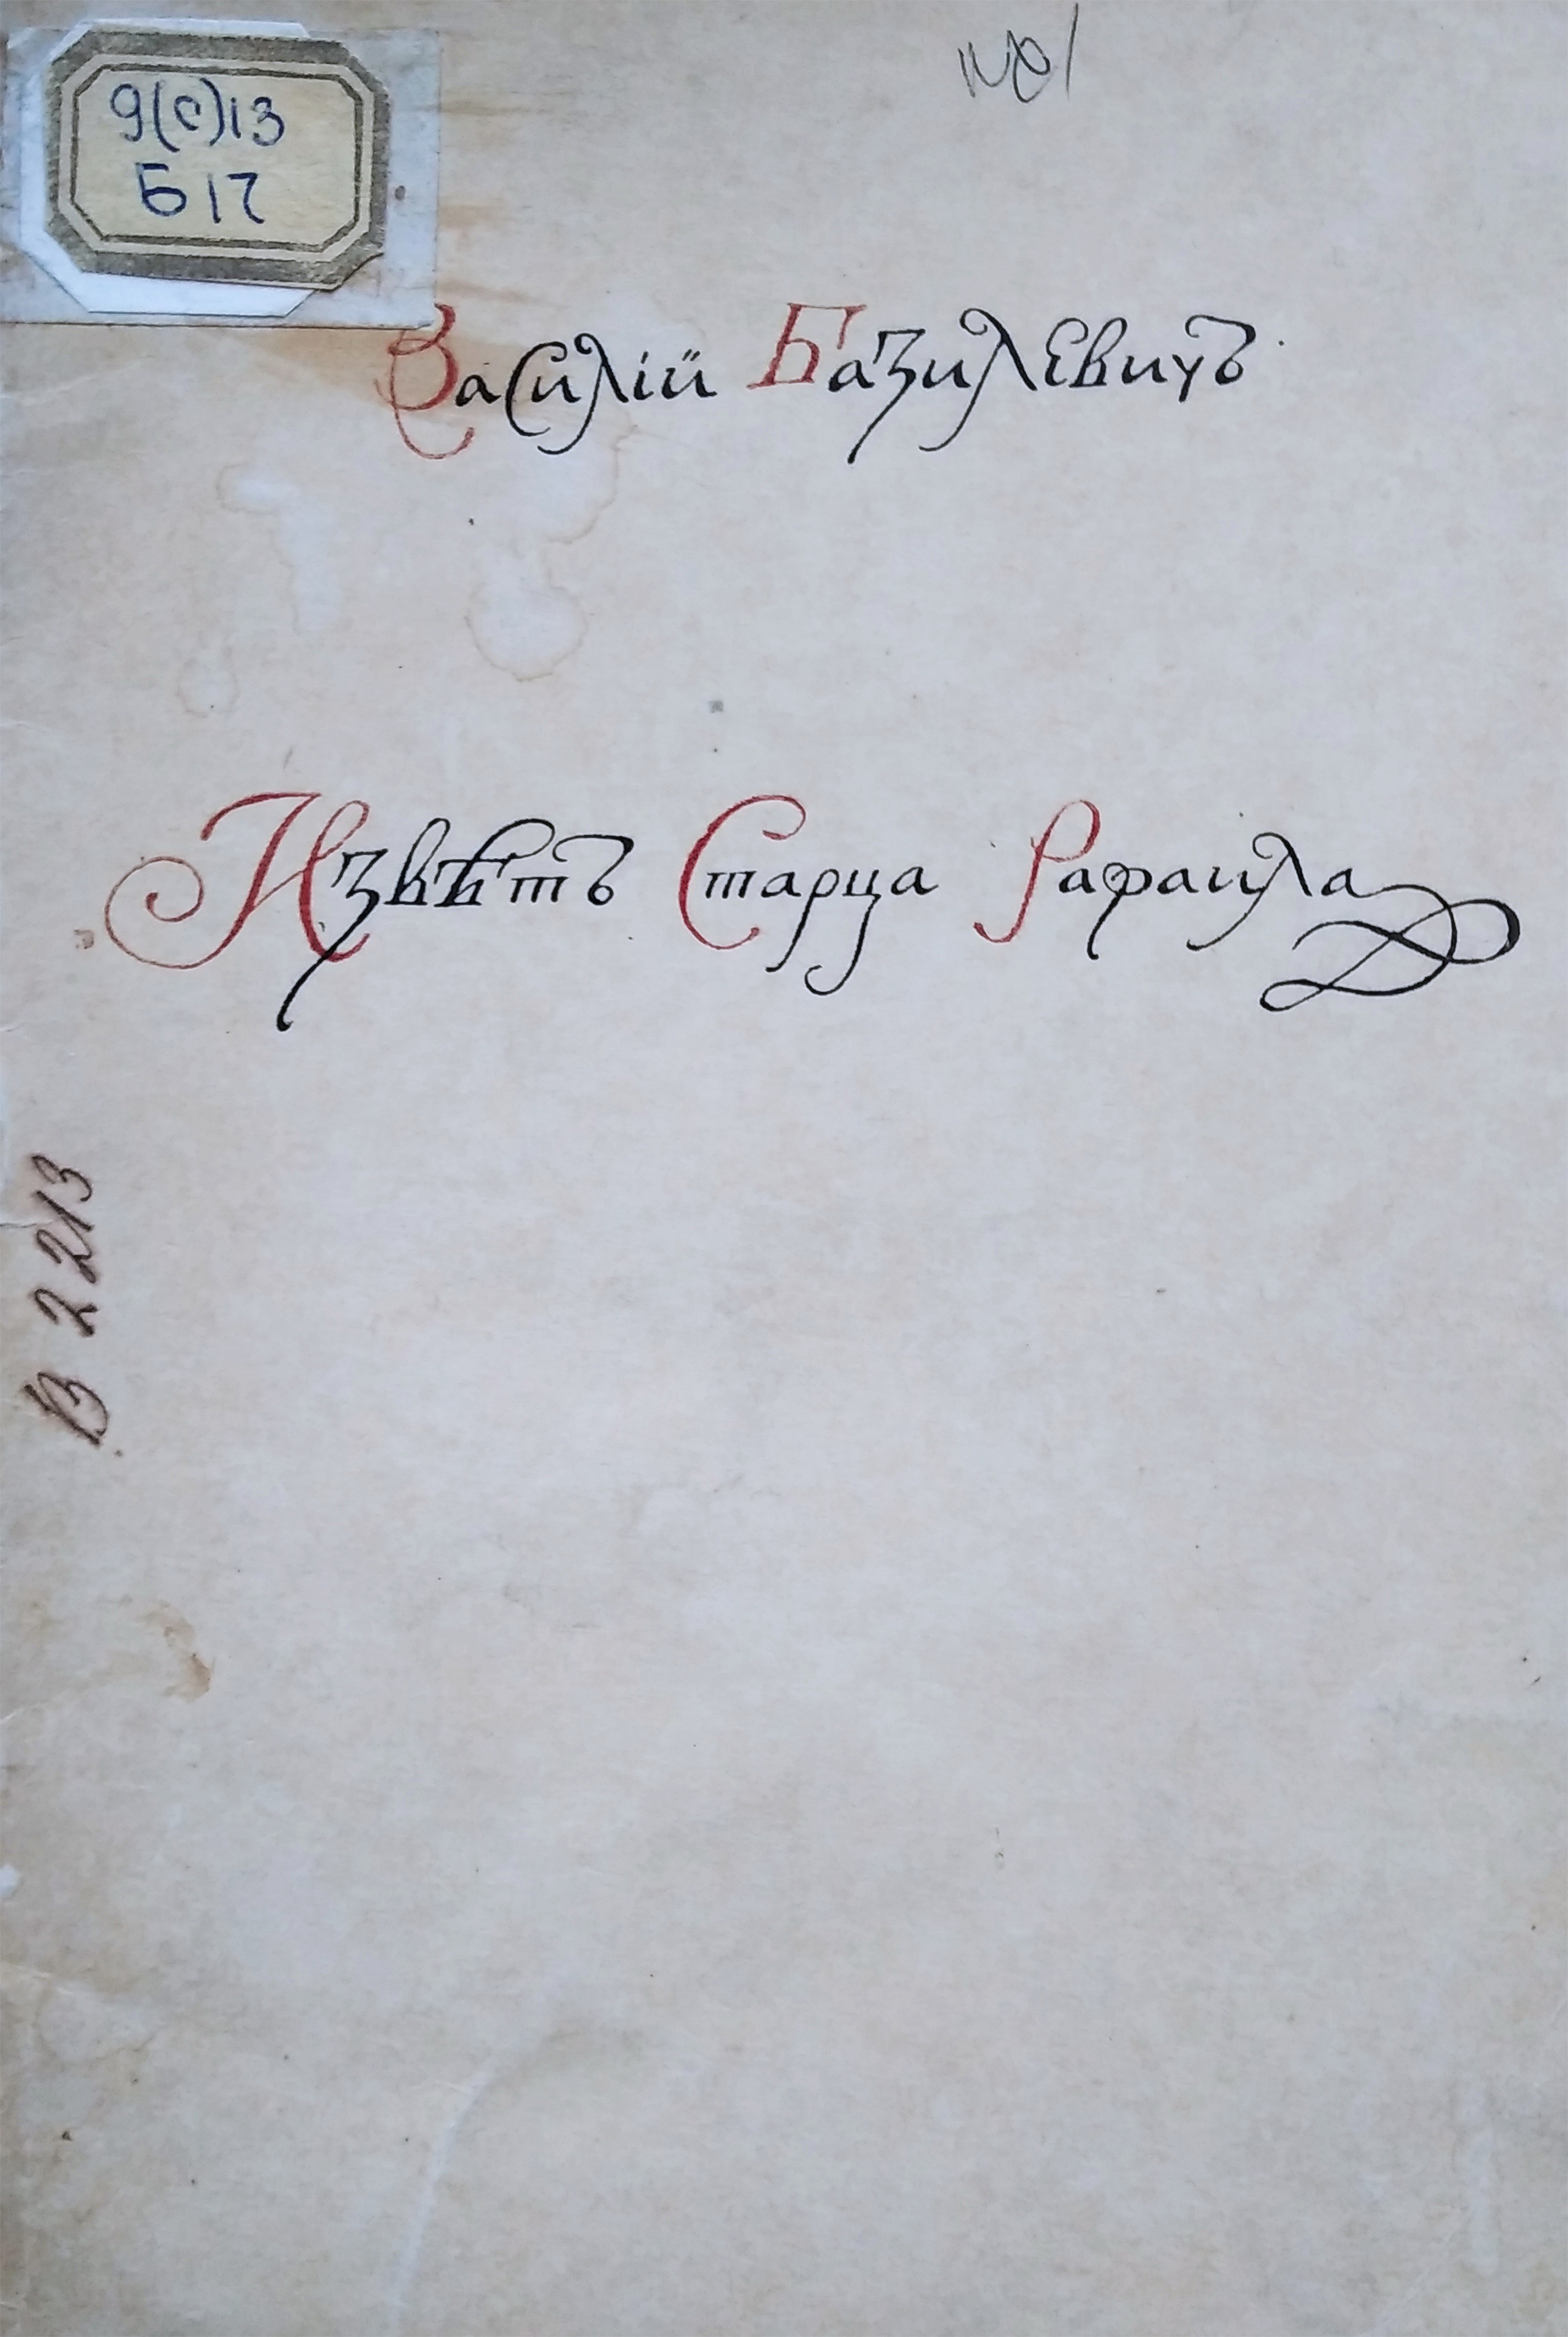 9(с)13
Б17
Василій Базилевичъ
Извѣтъ Старца Рафаила
В 2213